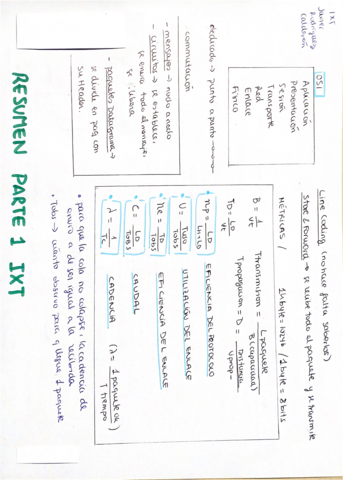 IXT
Javier
Rodríguez
Calderón
RESUMEN PARTE 1 IXT
OSI
Aplicación
Presentación
Sesión
Transporte
Red
Enlace
Físico
dedicado → punto a punto
conmutación
- mensajes → nodo a nodo
se envía todo el mensaje.
- circuitos → se establece,
se libera
- paquetes datagrama →
se divide en paq con
su header.
Line Coding (no hace falta saberlos)
Store & Forward → se recibe todo el paquete y se transmite
MÉTRICAS / 1 kbyte = 1024b / 1 byte = 8 bits
B = 1/vt
Ttransmision = Lpaquete / B(capacidad)
TD = LD/vt
Tpropagación = D = Distancia / Vprop
np = LD / LH+LD EFICIENCIA DEL PROTOCOLO
U = Tuso / Tobs UTILIZACIÓN DEL ENLACE
ne = TD / Tobs EFICIENCIA DEL ENLACE
C = LD / Tobs CAUDAL
λ = 1 / Tc CADENCIA (λ = 1 paquete ok / T tiempo)
• para que la cola no colapse la cadencia de
envío a de ser igual a la recibida
• Tobs → cuánto observo para q llegue 1 paquete